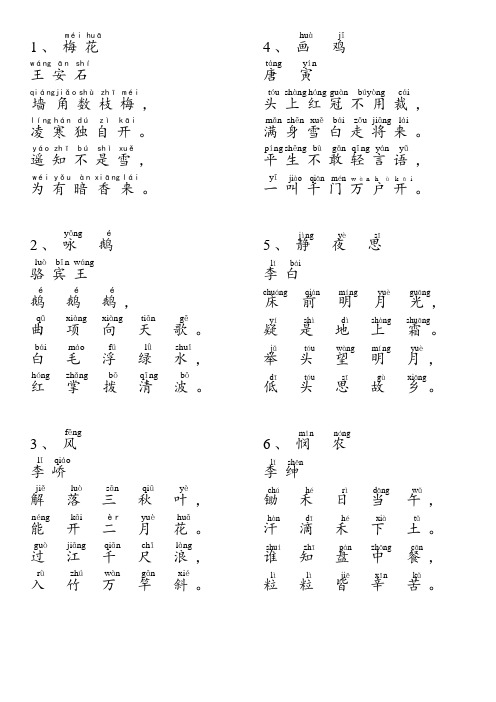 méi huā
1、梅花
wáng ān shí
王安石
qiáng jiǎo shù zhī méi
墙角数枝梅，
líng hán dú zì kāi
凌寒独自开。
yáo zhī bú shì xuě
遥知不是雪，
wéi yǒu àn xiāng lái
为有暗香来。
yǒng é
2、咏鹅
luò bīn wáng
骆宾王
é é é
鹅鹅鹅，
qū xiàng xiàng tiān gē
曲项向天歌。
bái máo fú lǜ shuǐ
白毛浮绿水，
hóng zhǎng bō qīng bō
红掌拨清波。
fēng
3、风
lǐ qiáo
李峤
jiě luò sān qiū yè
解落三秋叶，
néng kāi èr yuè huā
能开二月花。
guò jiāng qiān chǐ làng
过江千尺浪，
rù zhú wàn gān xié
入竹万竿斜。
huà jī
4、画鸡
táng yín
唐寅
tóu shàng hóng guān bùyòng cái
头上红冠不用裁，
mǎn shēn xuě bái zǒu jiāng lái
满身雪白走将来。
píng shēng bù gǎn qīng yán yǔ
平生不敢轻言语，
yī jiào qiān mén wàn hù kāi
一叫千门万户开。
jìng yè sī
5、静夜思
lǐ bái
李白
chuáng qián míng yuè guāng
床前明月光，
yí shì dì shàng shuāng
疑是地上霜。
jǔ tóu wàng míng yuè
举头望明月，
dī tóu sī gù xiāng
低头思故乡。
mǐn nóng
6、悯农
lǐ shēn
李绅
chú hé rì dāng wǔ
锄禾日当午，
hàn dī hé xià tǔ
汗滴禾下土。
shuí zhī pán zhōng cān
谁知盘中餐，
lì lì jiē xīn kǔ
粒粒皆辛苦。